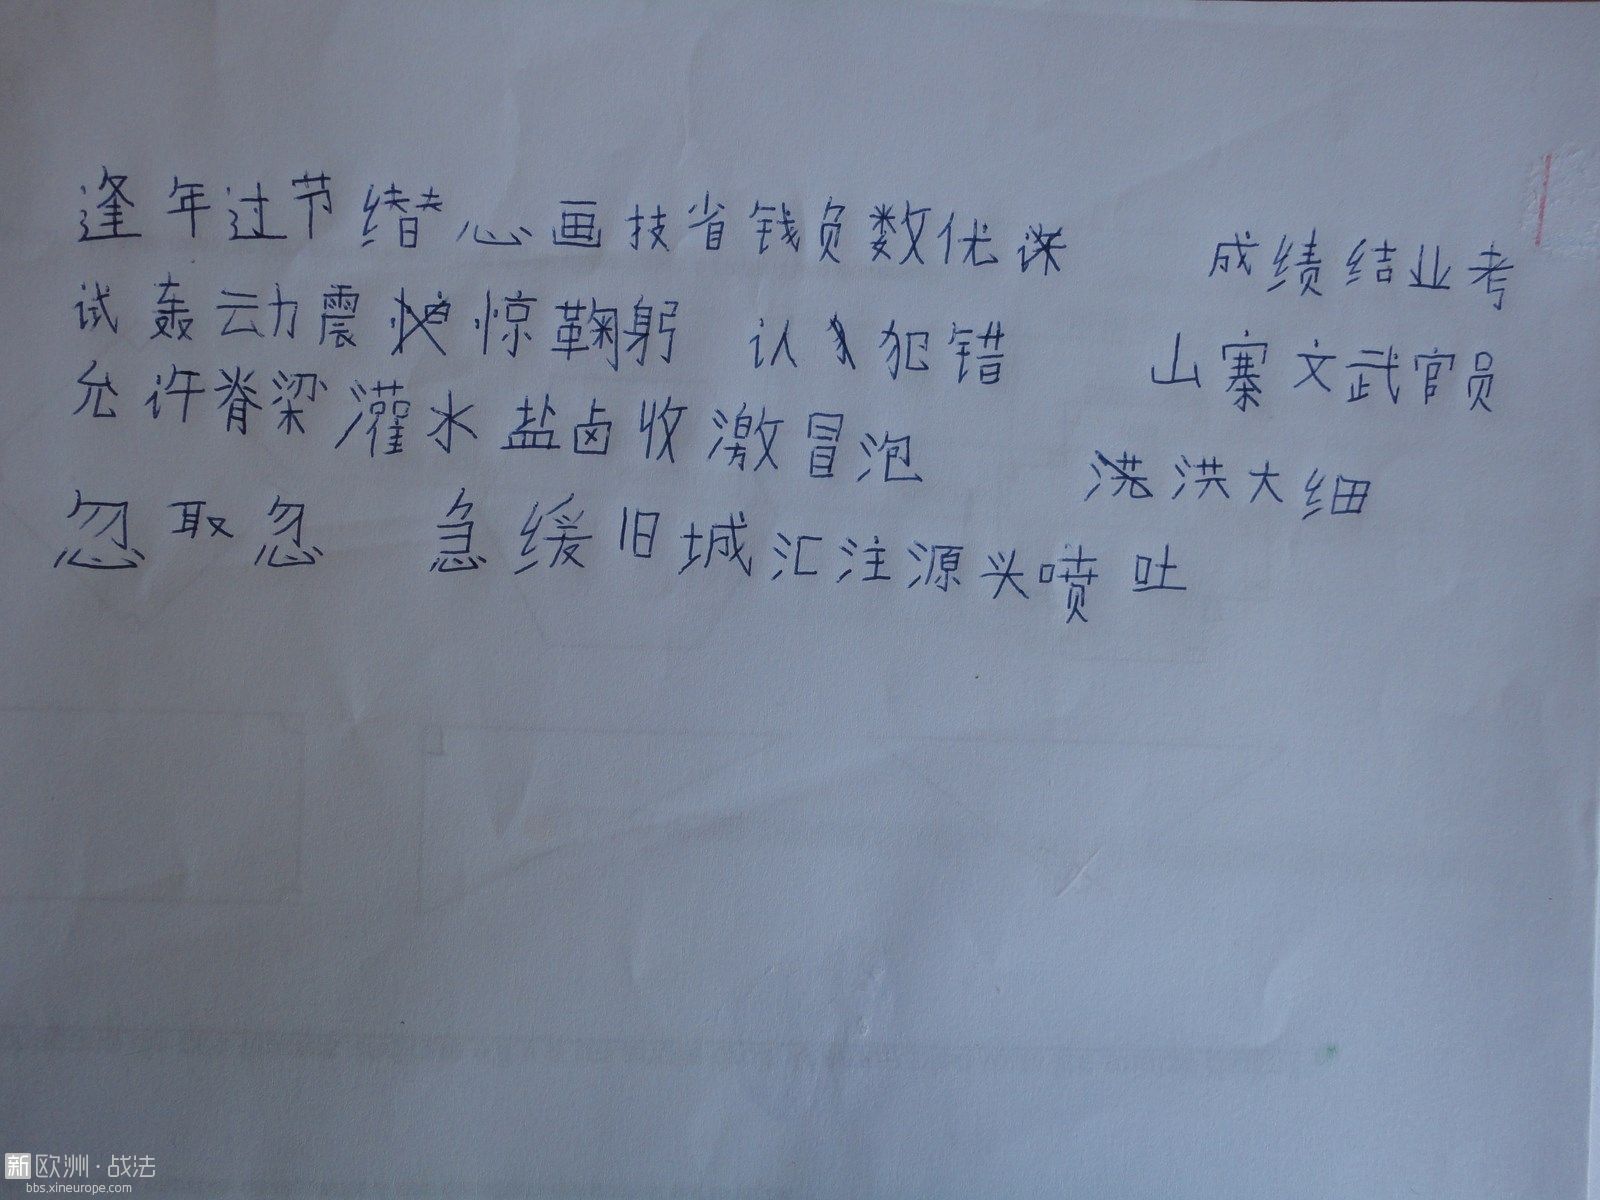 逢年过节绪心画技省钱负数优 成绩结业考
试轰动震惊鞠躬 认犯错 山寨文武官员
允许脊梁灌水盐卤收激冒泡 洪大细
忽取忽 急缓旧城汇注源头喷吐
新欧洲·战法
bbs.xineurope.com